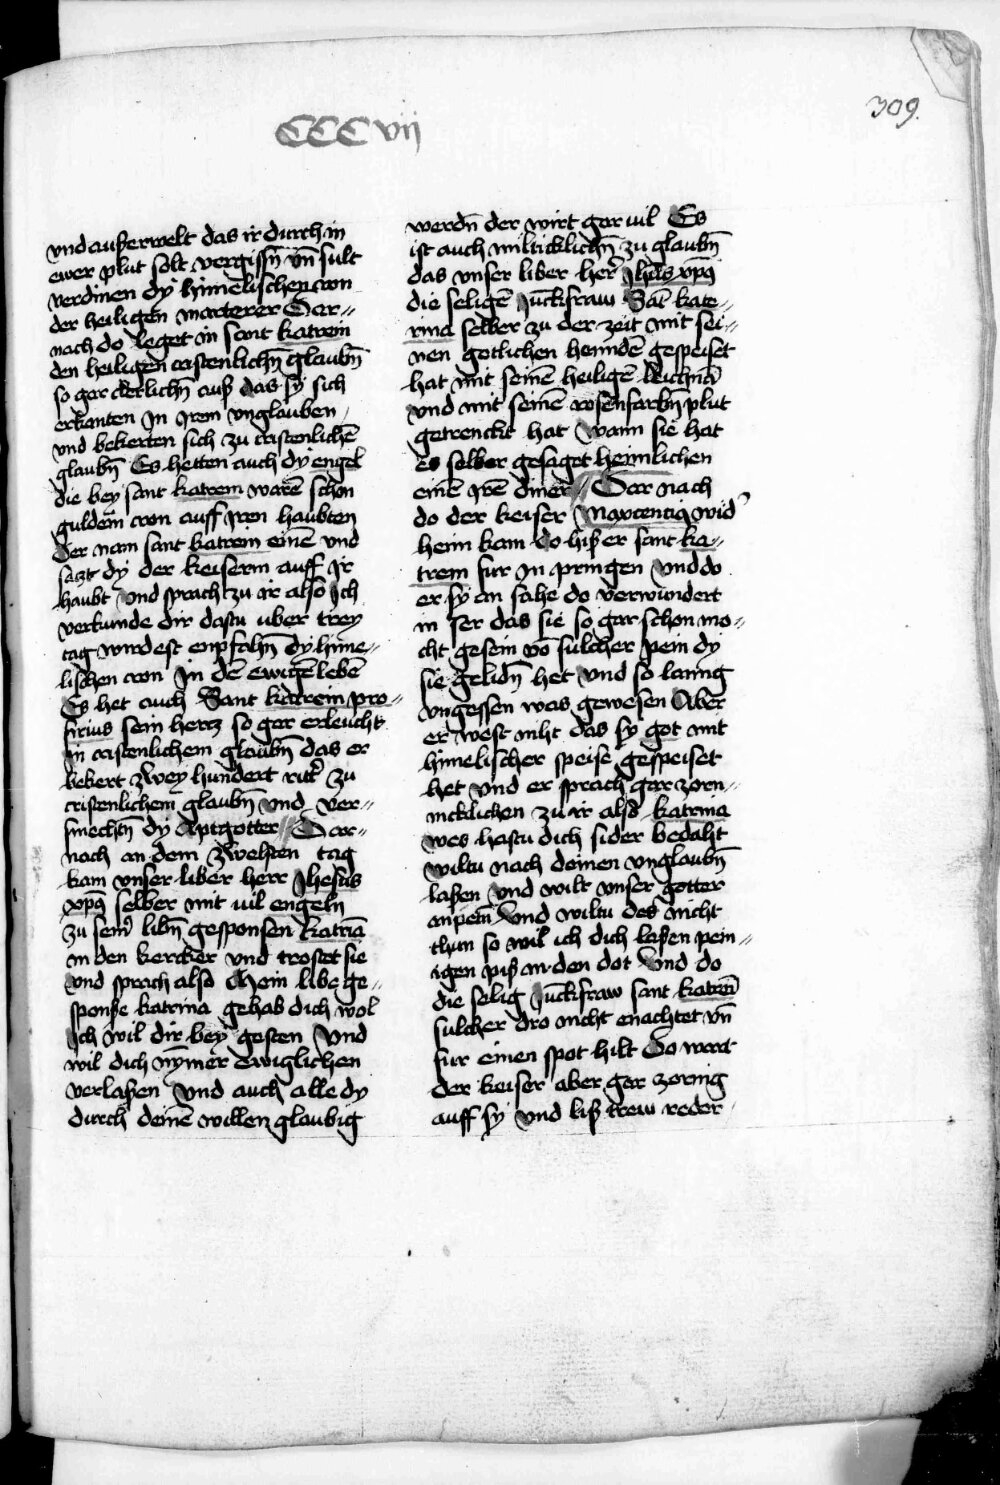 CCCvij
309.
vnd außerwelt das ir durch in
ewer plut solt vergissn̄ vn̄ sult
verdinen dy himelischen cron
der heiligen marterer Dar〃
nach do leget in sant katrein
den heiligen cristenlichn̄ glaubn̄
so gar clerlichn̄ auß das sy sich
erkanten Jn Jrem vnglauben
vnd bekerten sich zu cristenlichē
glaubn̄ Es hetten auch dy engel
die bey sant katrein warē schon
guldein cron auff Jren haubten
Der nam sant katrein einē vnd
satzt dy der keiserin auff Jr
haubt vnd sprach zu ir also Jch
verkunde dir dastu uber trey
tag wirdest enpfahn̄ dy hime〃
lischen cron Jn dē ewigē lebē
Es het auch Sant katrein pro〃
firius sein hercz so gar erleucht
Jn cristenlichem glaubn̄ das er
bekert zwey hundert rittˀ zu
cristenlichem glaubn̄ vnd ver〃
smechtn̄ dy Aptgotter Dar〃
nach an dem zwelften tag
kam vnser liber herr Jhesus
xpūs selber mit uil engeln
zu seinˀ libn̄ gesponsen katrīa
in den kercker vnd trostet sie
vnd sprach also Mein libe ge〃
sponße katrina gehab dich wol
Jch wil dir bey gesten Vnd
wil dich nȳmer ewiglichen
verlaßen Vnd auch alle dy
durch deinē willen glaubig
werdn̄ der wirt gar uil Es
ist auch milticklichn̄ zu glaubn̄
das vnser liber herˀ Jhūs xpūs
die seligē Juckfraw Sāt kate〃
rina selber zu der zeit mit sei〃
nen gotlichen hendē gespeiset
hat mit seinē heiligē leichnā
vnd mit seinē rosenfarbn̄ plut
getrenckt hat Wann sie hat
es selber gesaget heimlichen
einē Jrē diner Dar nach
do der keiser Maxencius widˀ
heim kam Do hiß er sant ka〃
trein fur Jn pringen Vnd do
er sy an sahe do verwundert
in ser das sie so gar schon mo〃
cht gesein vō sulcher pein dy
sie gelidn̄ het Vnd so lanng
vngessen was gewesen Aber
er west niht das sy got mit
himelischer speise gespeiset
het Vnd er sprach gar zorn〃
nicklichen zu ir also katrina
wes hastu dich sider bedaht
wiltu nach deinen vnglaubn̄
laßen Vnd wilt vnser gotter
anpetn̄ Vnd wiltu des nicht
thun so wil ich dich laßen pein〃
igen piß an den dot Vnd do
die selig Juckfraw sant katrēi
sulcher dro nicht enachtet vn̄
fur einen spot hilt Do ward
der keiser aber gar zornig
auff sy Vnd liß trew reder